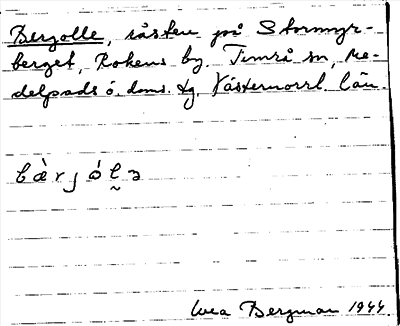 Bergolle, råsten på Stormyr-
berget, Rokens by. Timrå sn, Me-
delpads ö. doms. tg, Västernorrl. län.
bæ̀rjólə
Bergman 1944.